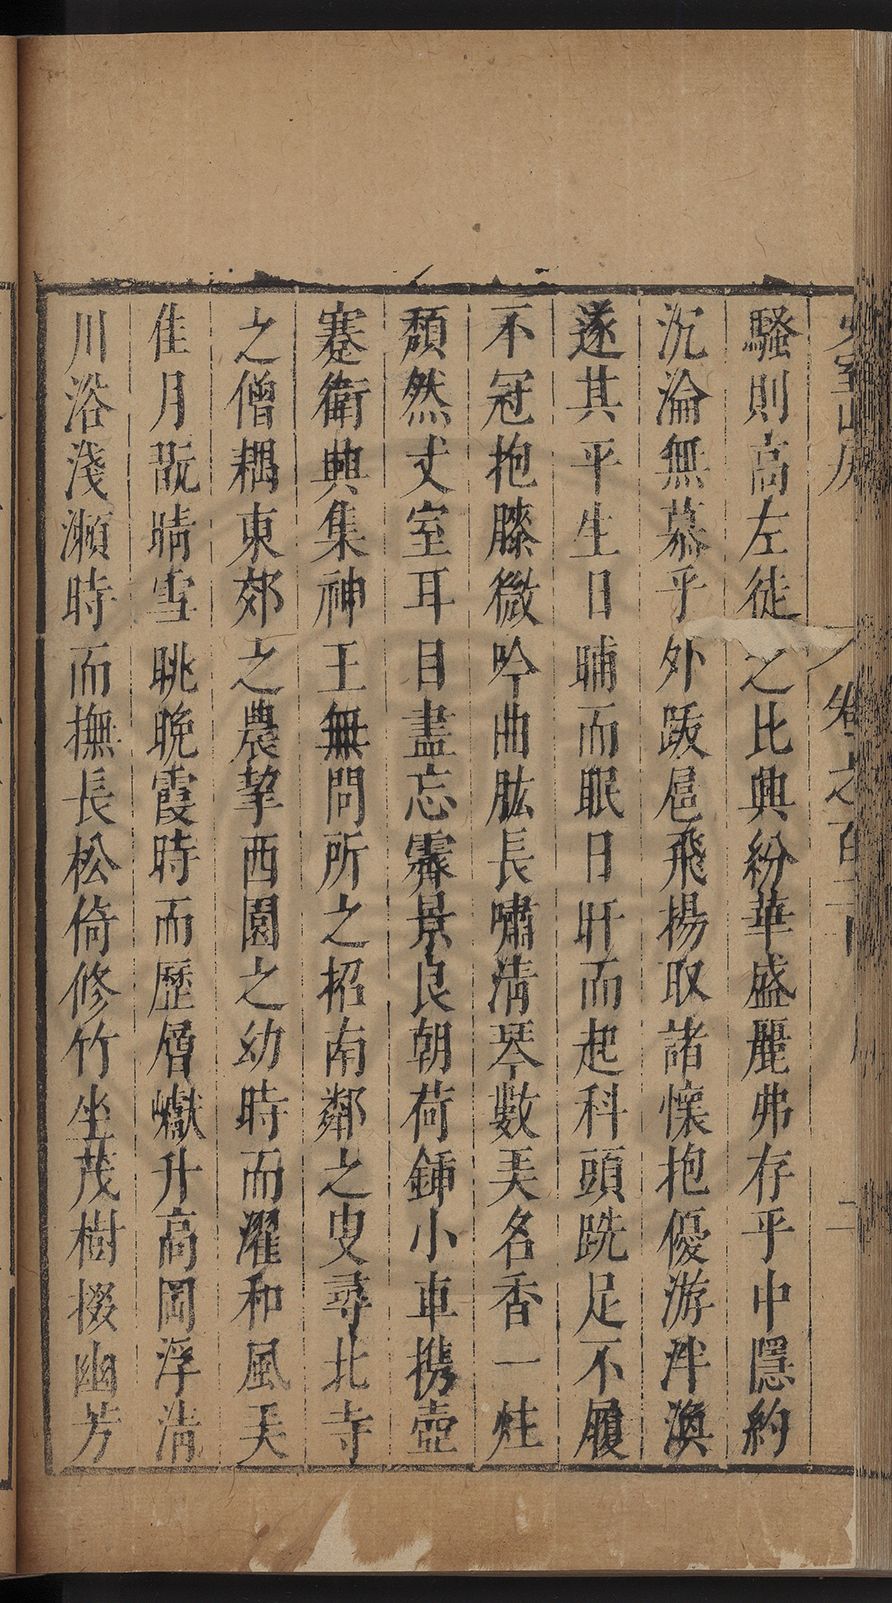 卷之百
騷則高左徒之比興紛華盛麗弗存乎中隱約
沉淪無慕乎外䟦扈飛揚取諸懷抱優游泮渙
遂其平生日晡而眠日旰而起科頭跣足不履
不冠抱膝微吟曲肱長嘯清琴數美名香一炷
頹然丈室耳目盡忘霽景良朝荷鍤小車携壺
蹇衛興集神王無問所之招南鄰之叟尋北寺
之僧耦東郊之農挈西園之幼時而濯和風天
佳月翫晴雪眺晚霞時而歷層巘升高岡浮清
川浴淺瀨時而撫長松倚修竹坐茂樹掇幽芳